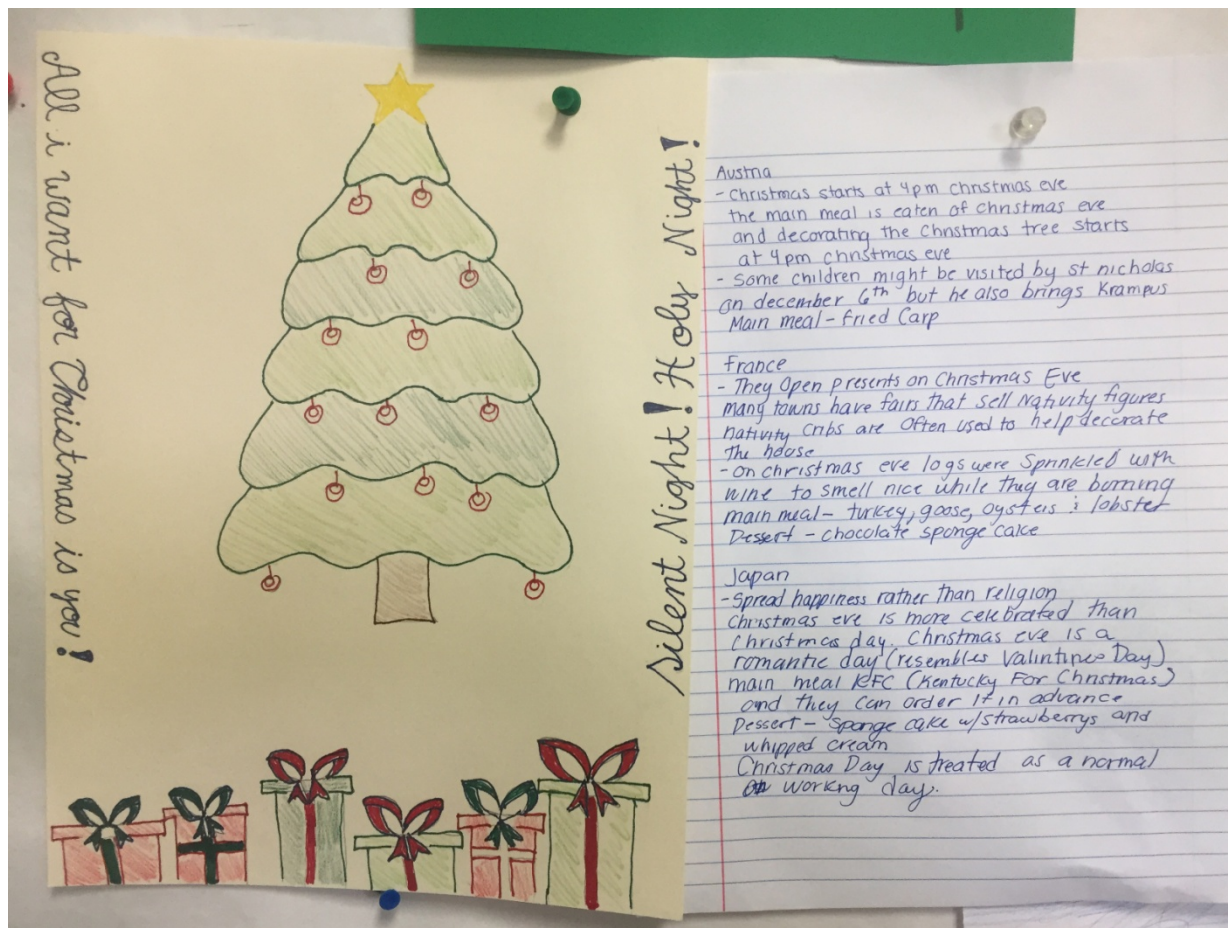 All i want for Christmas is you!
Silent Night! Holy Night!
Austria
- Christmas starts at 4pm christmas eve
the main meal is eaten of christmas eve
and decorating the Christmas tree starts
at 4pm christmas eve
- Some children might be visited by st nicholas
on december 6th but he also brings Krampus
Main meal - Fried Carp
France
- They Open presents on Christmas Eve
many towns have fairs that sell Nativity figures
nativity cribs are Often used to help decorate
The house
- On christmas eve logs were Sprinkled with
wine to smell nice while they are burning
main meal - turkey, goose, oysters i lobster
Dessert - chocolate sponge cake
Japan
- Spread happiness rather than religion
Christmas eve is more celebrated than
Christmas day. Christmas eve is a
romantic day (resembles Valintines Day)
main meal KFC (Kentucky For Christmas)
and they can order it in advance
Dessert - Sponge cake w/strawberrys and
whipped cream
Christmas Day is treated as a normal
working day.